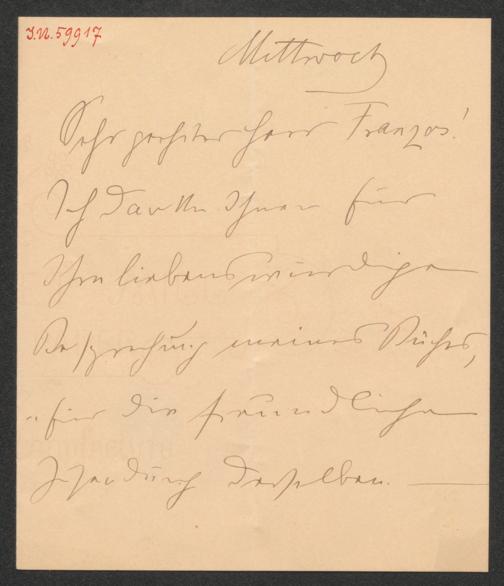 I.N. 59917
Mittwoch
Sehr geehrter Herr Franzos!
Ich danke Ihnen für
Ihre liebenswürdige
Besprechung meines Buches,
u. für die freundliche
Zusendung derselben. —